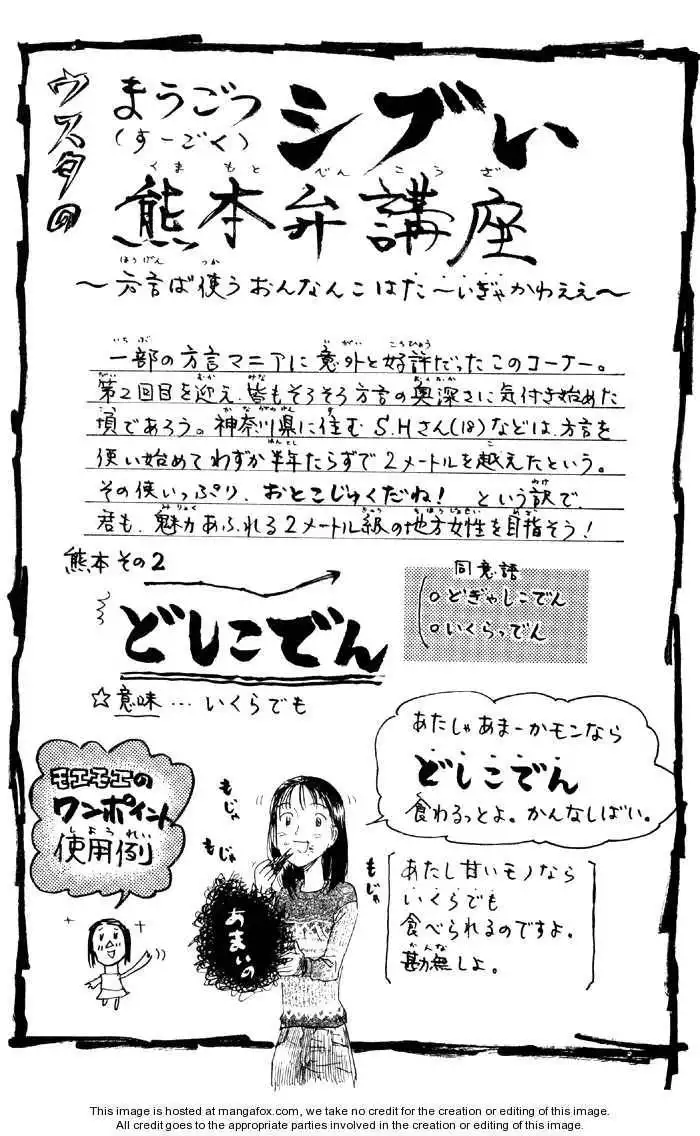 ウスタの
まうごつ シブい
(すーごく)
熊本弁講座
くまもとべんこうざ
〜方言ば使うおんなんこはた〜いぎゃかわええ〜
一部の方言マニアに意外と好評だったこのコーナー。
第2回目を迎え、皆もそろそろ方言の奥深さに気付き始めた
頃であろう。神奈川県に住むS.Hさん(18)などは、方言を
使い始めてわずか半年たらずで2メートルを越えたという。
その使いっぷり、おとこじゅくだね! という訳で、
君も、魅力あふれる2メートル級の地方女性を目指そう!
熊本その2
どしこでん
☆意味…いくらでも
同意語
○どぎゃしこでん
○いくらっでん
あたしゃあまーかモンなら
どしこでん
食わるっとよ。かんなしばい。
あたし甘いモノなら
いくらでも
食べられるのですよ。
勘無しよ。
モエモエの
ワンポイント
使用例
しようれい
もじゃ
もじゃ
もじゃ
あまいの
This image is hosted at mangafox.com, we take no credit for the creation or editing of this image.
All credit goes to the appropriate parties involved in the creation or editing of this image.